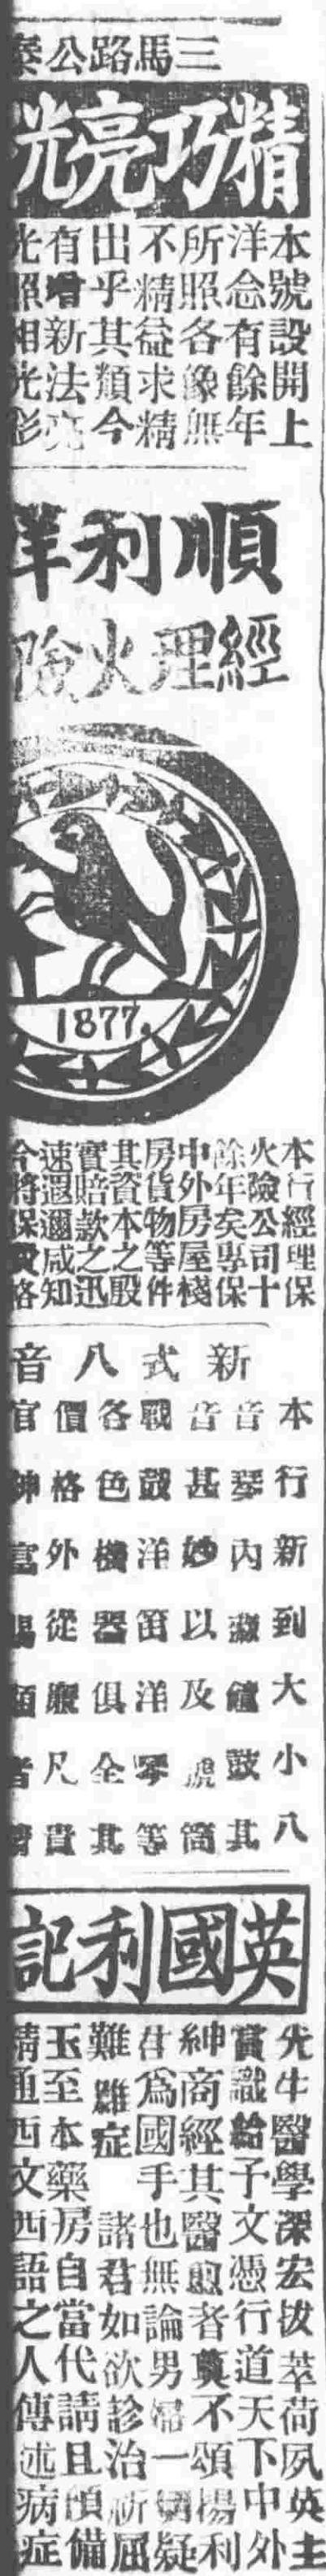 三馬路公泰
精巧亮光
本號設開上
洋念有餘年
所照各象無
不精益求精
出乎其類今
有增新法亮
光照相光彩
順利洋
經理火險
1877.
本行經理保
火險公司十
餘年矣專保
中外房屋棧
房貨物等件
其資本之殷
實賠款之迅
速遐邇咸知
今將保費格
新式八音
本行新到大小八
音琴內藏鐘鼓其
音甚妙以及號筒
戰鼓洋笛洋琴等
各色機器俱全其
價格外從廉凡貴
官紳富賜顧者
英國利記
先生醫學深宏拔萃荷夙英主
賞識給予文憑行道天下中外
紳商經其醫愈者莫不頌揚利
君為國手也無論男婦一切疑
難雜症 諸君如欲診治祈屈
玉至本藥房自當代請且預備
精通西文西語之人傳述病症